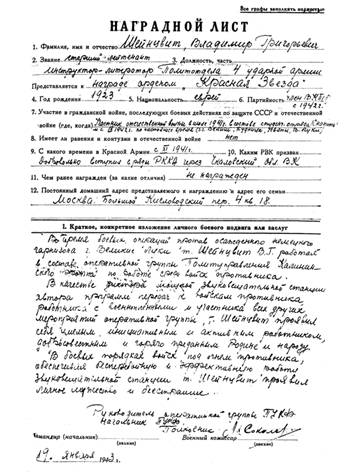 Все графы заполнять обязательно
НАГРАДНОЙ ЛИСТ
1. Фамилия, имя и отчество Шейнцвит Владимир Григорьевич
2. Звание старший лейтенант 3. Должность, часть
инструктор-литератор Политотдела 4 ударной армии
Представляется к награде орденом „Красная Звезда"
4. Год рождения 1923 5. Национальность еврей 6. Партийность
7. Участие в гражданской войне, последующих боевых действиях по защите СССР и отечественной
войне (где, когда)
8. Имеет ли ранения и контузии в отечественной войне нет
9. С какого времени в Красной Армии с 1941 г. 10. Каким РВК призван
добровольно вступил в ряды РККА через
11. Чем ранее награжден (за какие отличия) не награжден
12. Постоянный домашний адрес представляемого к награждению и адрес его семьи
Москва. Большой Кисловский пер. 4 кв. 18.
I. Краткое, конкретное изложение личного боевого подвига или заслуг
Во время боевых операций против осажденного немецкого
гарнизона г. Великие Луки т. Шейнцвит В.Г. работал
в составе оперативной группы Политуправления Калинин-
ского фронта по работе среди войск противника.
В качестве диктора мощной звуковещательной станции
автора программ передач к войскам противника,
работника с военнопленными и участника всех других
мероприятий оперативной группы, т. Шейнцвит проявил
себя умелым, инициативным и активным работником,
добросовестным и горячо преданным Родине и народу.
В боевых порядках войск под огнем противника,
обеспечивая бесперебойную и эффективную работу
звуковещательной станции т. Шейнцвит проявил
личное мужество и бесстрашие.
Руководитель оперативной группы ПУКФ
Начальник
Полковник Соколов
Командир (начальник) Военный комиссар
(звание) (звание)
19 января 1943 г.